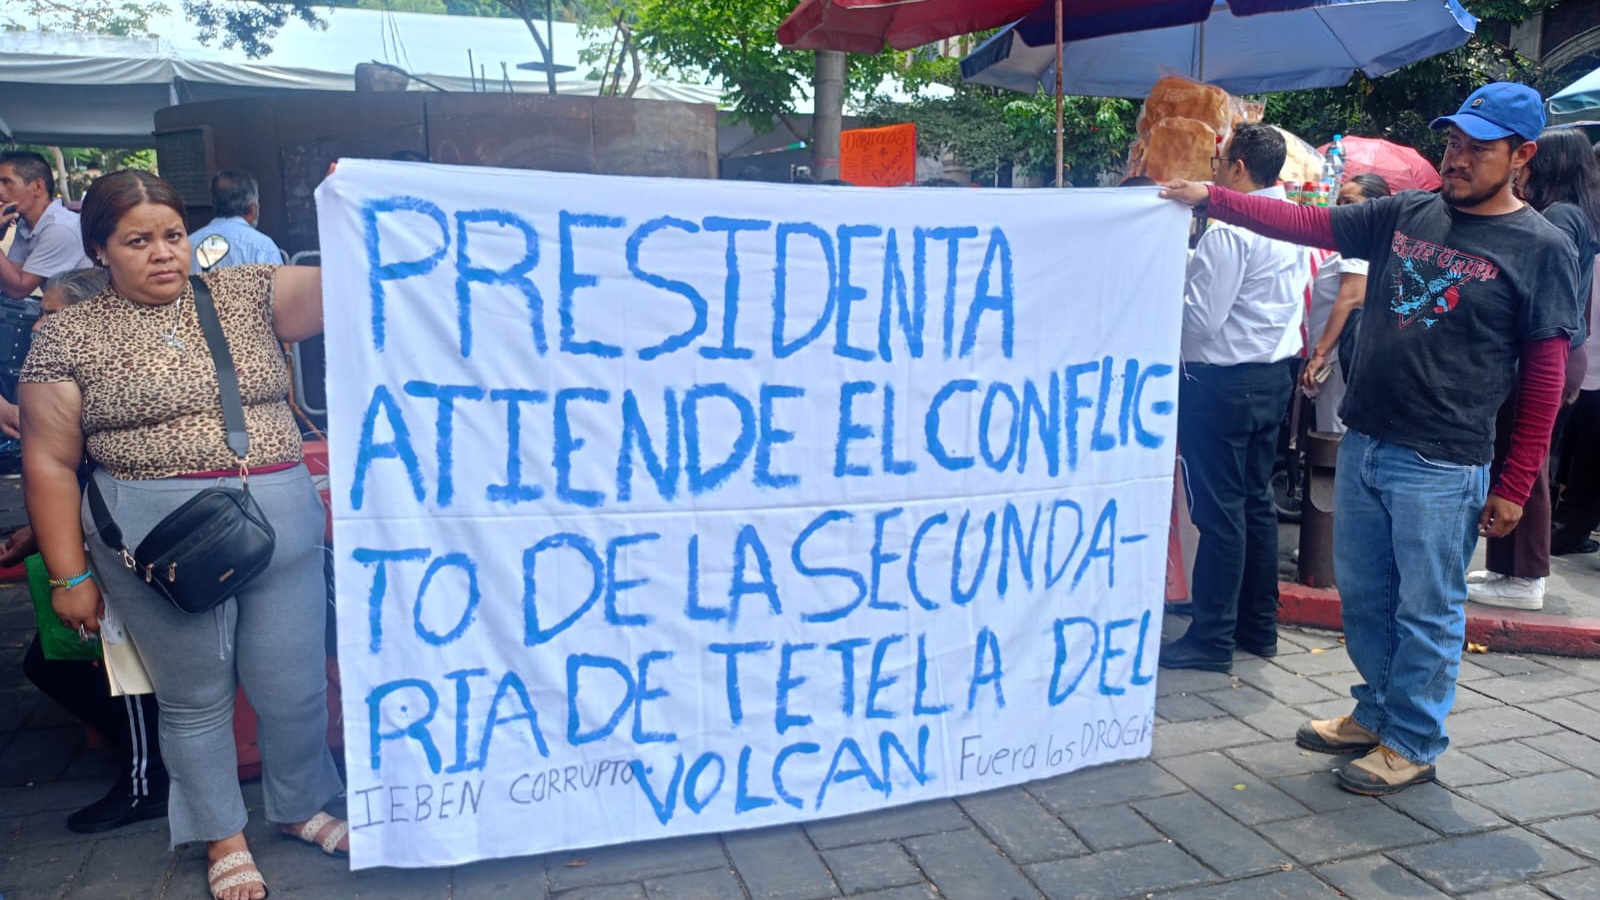 PRESIDENTA
ATIENDE EL CONFLIC-
TO DE LA SECUNDA-
RIA DE TETELA DEL
VOLCAN
IEBEN CORRUPTO
Fuera las DROGAS
DORILOCOS